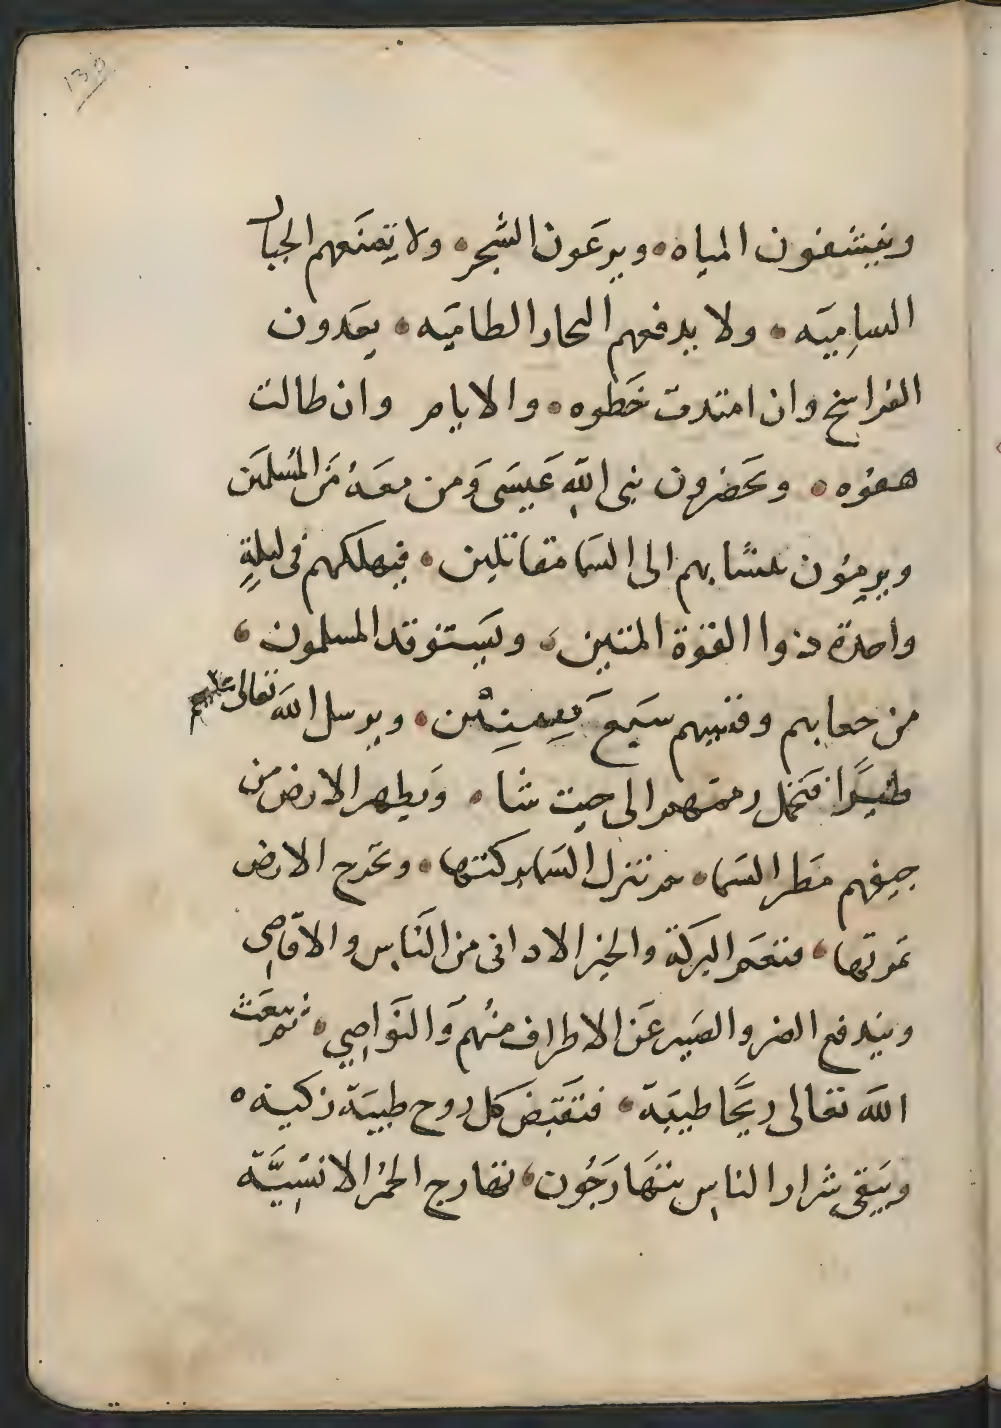 135
وينشفون المياه • ويرعون الشجر • ولا تمنعهم الجبال
السامية • ولا يدفعهم البحار الطاميه • يعدون
الفراسخ وان امتدت خطوه • والايام وان طالت
هفوه • ويحضرون نبى الله عيسى ومن معه من المسلمين
ويرمون بنشابهم الى السما مقاتلين • فيهلكهم فى ليلةٍ
واحدة ذوا القوة المتين • ويستوقد المسلمون •
من جعابهم وقسيهم سبع سنين • ويرسل الله تعالى عليهم
طيرًا فتحمل رممهم الى حيث شا • ويطهر الارض من
جيفهم مطر السما • ثم تنزل السما بركتها • وتخرج الارض
ثمرتها • فتعم البركة والخير الادانى من الناس والاقاصي
ويندفع الضر والضير عن الاطراف منهم والنواصي • ثم يبعث
الله تعالى ريحًا طيبة • فتقبض كل روح طيبة زكية •
ويبقى شرار الناس يتهارجون • تهارج الحمر الانسيَّة